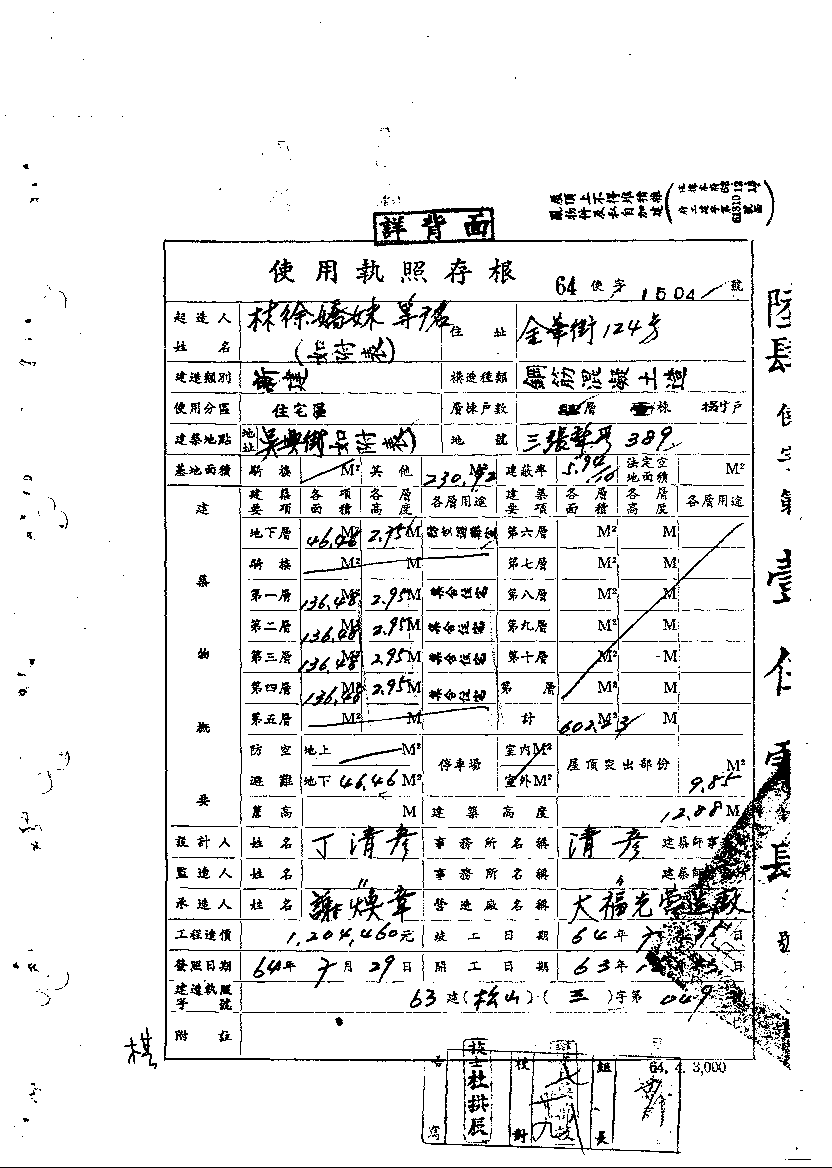 屋頂上不得堆積雜
亂物件及私自加建
詳背面
使用執照存根 64使字1504號
起造人姓名 林徐嬌妹等 (如附表) 住址 金華街124號
建造類別 新建 構造種類 鋼筋混凝土造
使用分區 住宅區 層棟戶數 層 棟 戶
建築地點 地址 吳興街(如附表) 地號 三張犁段 389
基地面積 騎樓 M² 其他 230.92 M² 建蔽率 5.94/10 法定空地面積 M²
建築物概要
建築要項 各項面積 各層高度 各層用途 建築要項 各層面積 各層高度 各層用途
地下層 46.48 M² 2.75 M 第六層 M² M
騎樓 M² M 第七層 M² M
第一層 136.48 M² 2.95 M 集合住宅 第八層 M² M
第二層 136.48 M² 2.95 M 集合住宅 第九層 M² M
第三層 136.48 M² 2.95 M 集合住宅 第十層 M² M
第四層 136.48 M² 2.95 M 集合住宅 第 層 M² M
第五層 M² M 計 M² M
防空避難 地上 M² 停車場 室內 M² 屋頂突出部份 M²
地下 46.46 M² 室外 M² 9.85
簷高 M 建築高度 12.88 M
設計人 姓名 丁清彥 事務所名稱 清彥 建築師事
監造人 姓名 〃 事務所名稱 〃 建築師
承造人 姓名 謝煥章 營造廠名稱 大福光營造廠
工程造價 1,204,460元 竣工日期 64年 日
發照日期 64年7月29日 開工日期 63年 日
建造執照字號 63建(松山)(三)字第049
附註
棋
64. 4. 3,000
技士杜拱辰
校對
組長
陸肆使字第壹仟